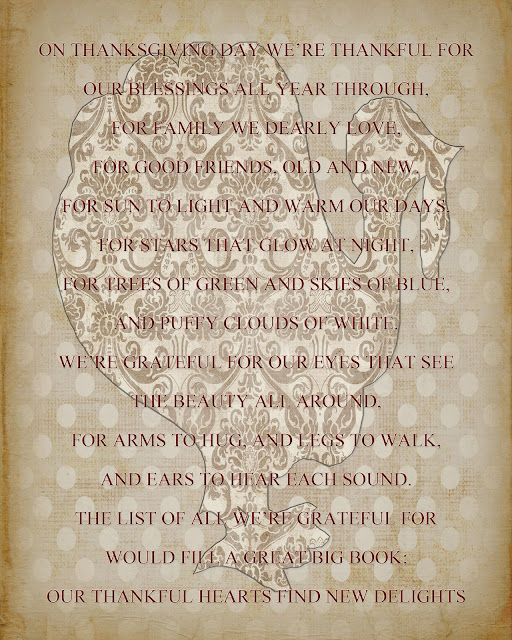 ON THANKSGIVING DAY WE'RE THANKFUL FOR
OUR BLESSINGS ALL YEAR THROUGH,
FOR FAMILY WE DEARLY LOVE,
FOR GOOD FRIENDS, OLD AND NEW,
FOR SUN TO LIGHT AND WARM OUR DAYS,
FOR STARS THAT GLOW AT NIGHT,
FOR TREES OF GREEN AND SKIES OF BLUE,
AND PUFFY CLOUDS OF WHITE.
WE'RE GRATEFUL FOR OUR EYES THAT SEE
THE BEAUTY ALL AROUND,
FOR ARMS TO HUG, AND LEGS TO WALK,
AND EARS TO HEAR EACH SOUND.
THE LIST OF ALL WE'RE GRATEFUL FOR
WOULD FILL A GREAT BIG BOOK;
OUR THANKFUL HEARTS FIND NEW DELIGHTS